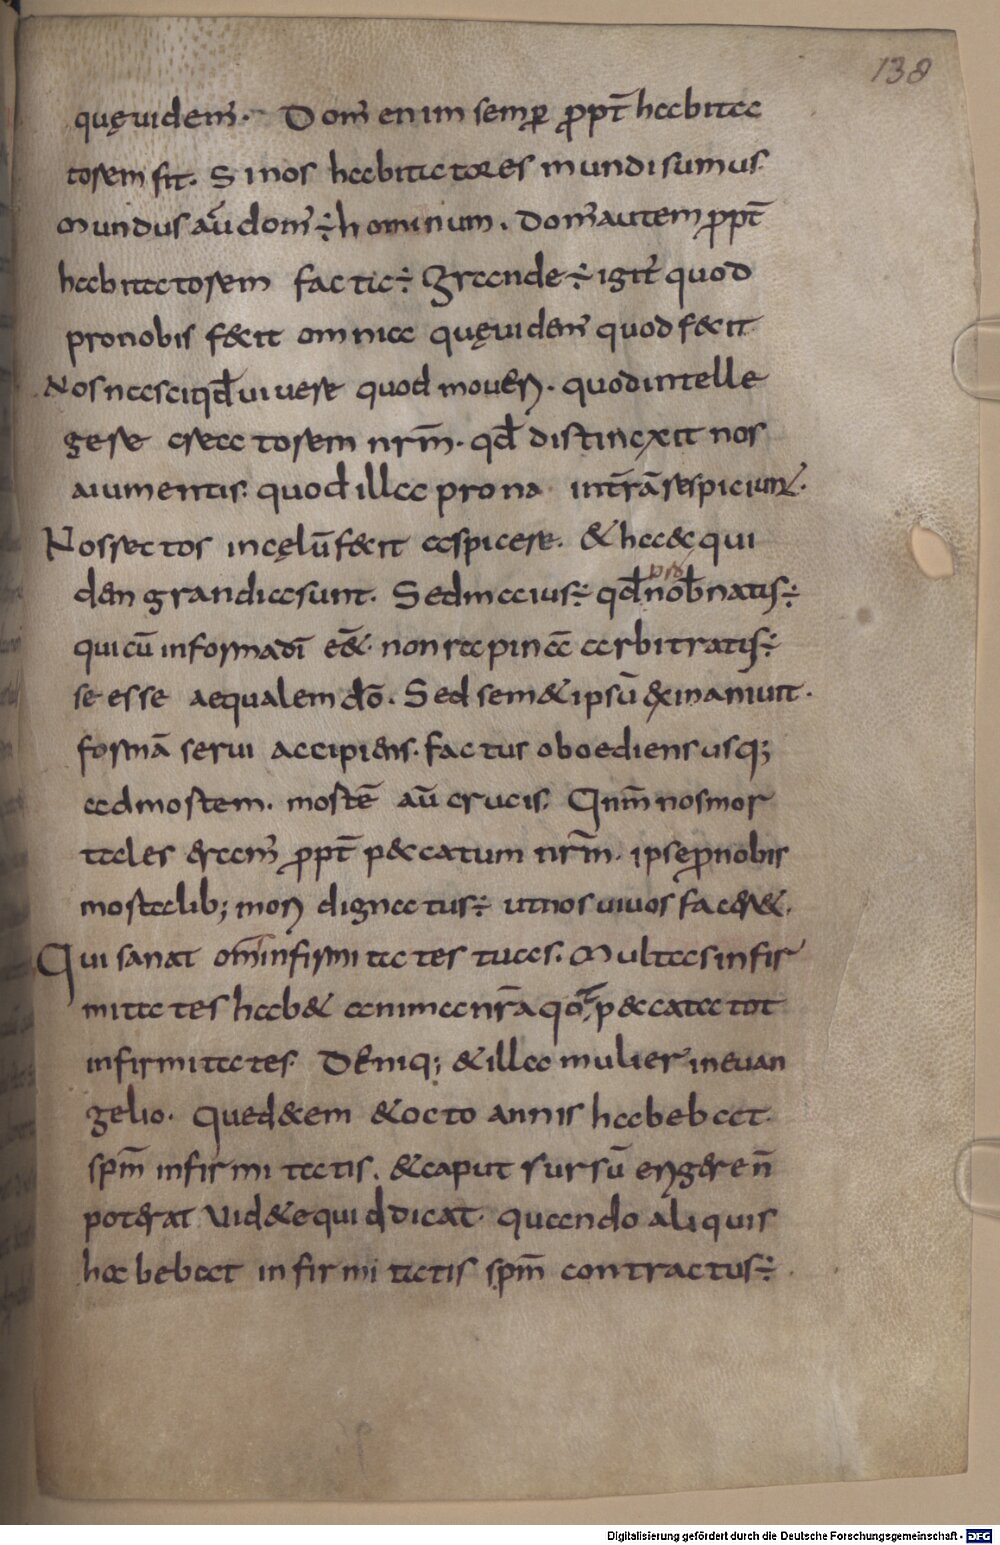 138
quęuidem̃. Dom̃ enim semꝑ ꝓpt̃ habita
torem sit. Si nos habitatores mundi sumus.
Mundus aũ dom̃ ÷ hominum. Dom̃ autem ꝓpt̃
habitatorem facta ÷ Grande ÷ igit̃ quod
pro nobis fecit omnia quęuidem̃ quod fecit
Nos nasci qđ uiuere quod mouẽri. quod intelle
gere creatorem nr̃m. qđ distinxit nos
a iumentis. quod illa prona in tr̃ã respiciunt.
Nos rectos in cęlũ fecit aspicere. & haec qui
dem grandia sunt. Sed maius ÷ qđ pro nob̃ natus ÷
qui cũ in forma dĩ eẽ&. non rapinã arbitratus ÷
se esse aequalem dõ. Sed semetipsũ exinaniuit.
formã serui accipiens. factus oboediens usq;
ad mortem. mortẽ aũ crucis. Qnm̃ nos mor
tales eram̃ ꝓpt̃ peccatum nr̃m. ipse pro nobis
mortalib; mori dignatus ÷ ut nos uiuos facer&.
Qui sanat om̃ infirmitates tuas. Multas infir
mitates hab& anima nr̃a quõ peccata tot
infirmitates. Deniq; & illa mulier in euan
gelio. Que decem & octo annis habebat.
sp̃m infirmitatis. & caput sursũ erigere ñ
poterat Uidete quid dicat. quando aliquis
habebat infirmitatis sp̃m contractus ÷.
Digitalisierung gefördert durch die Deutsche Forschungsgemeinschaft - DFG